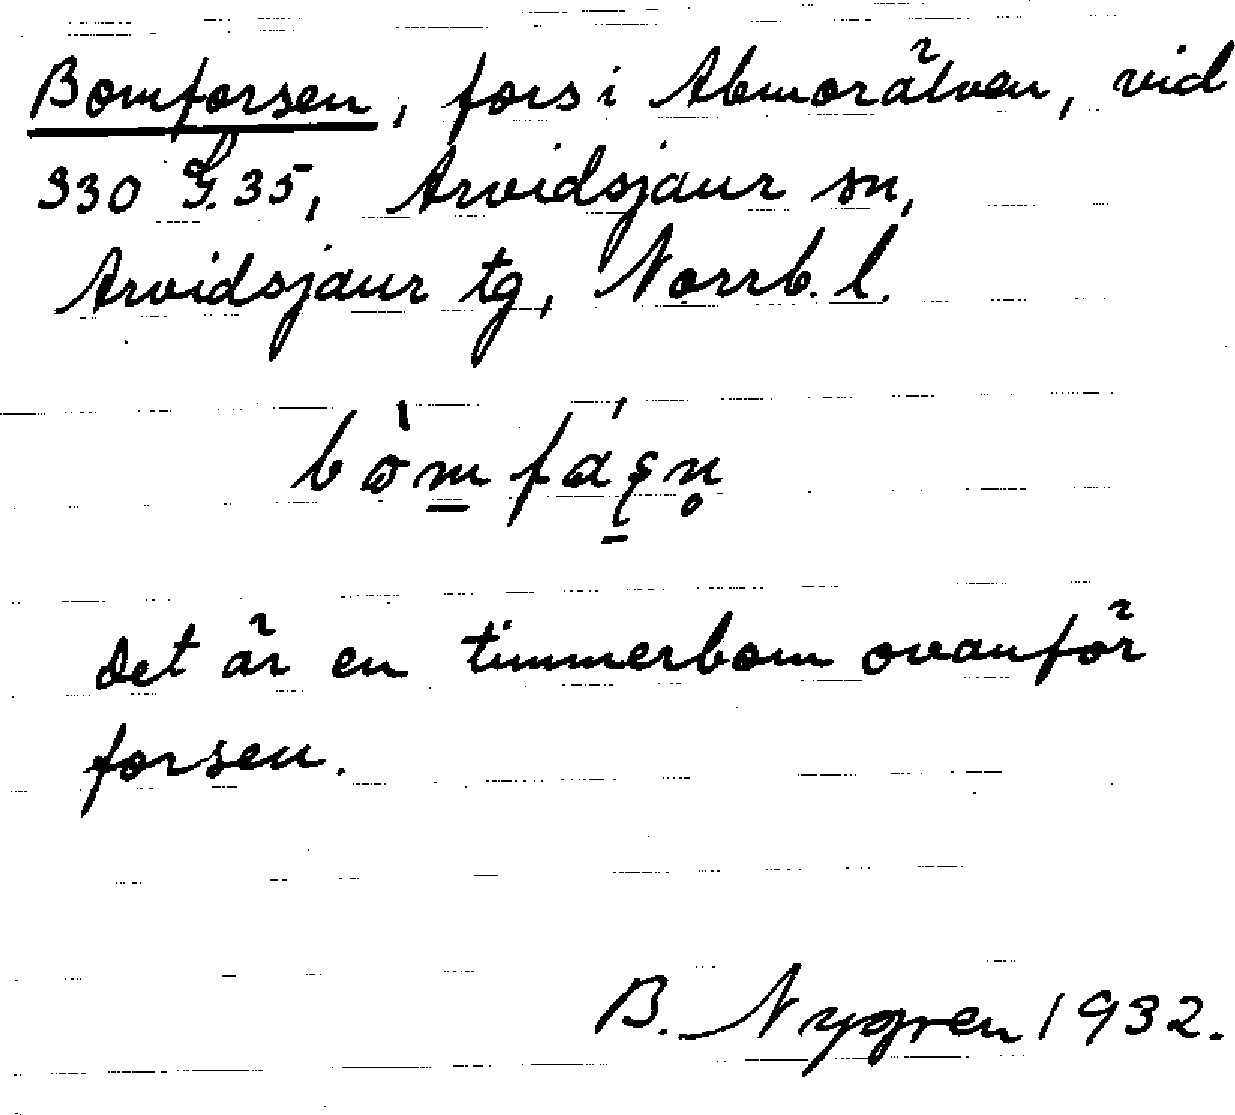 Bomforsen, fors i Abmorälven, vid
S30 G.35, Arvidsjaur sn,
Arvidsjaur tg, Norrb. l.
Det är en timmerbom ovanför
forsen.
B. Nygren 1932.